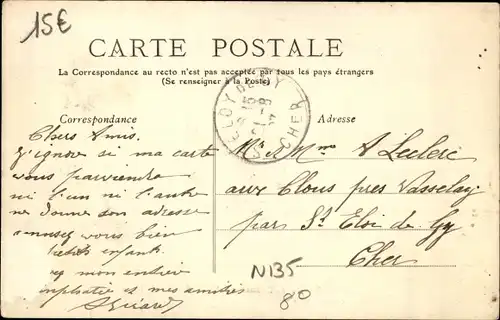 15€
CARTE POSTALE
La Correspondance au recto n'est pas acceptée par tous les pays étrangers
(Se renseigner à la Poste)
Correspondance
Adresse
Chers Amis.
J'ignore si ma carte
vous parviendra
ni l'un ni l'autre
ne donne son adresse
amusez vous bien
petits enfants
mon entière
et mes amitiés
Mr et Mme A Leclerc
aux Clous près Vasselay
par St Eloi de Gy
Cher
ST ELOY DE GY
CHER
N135
80